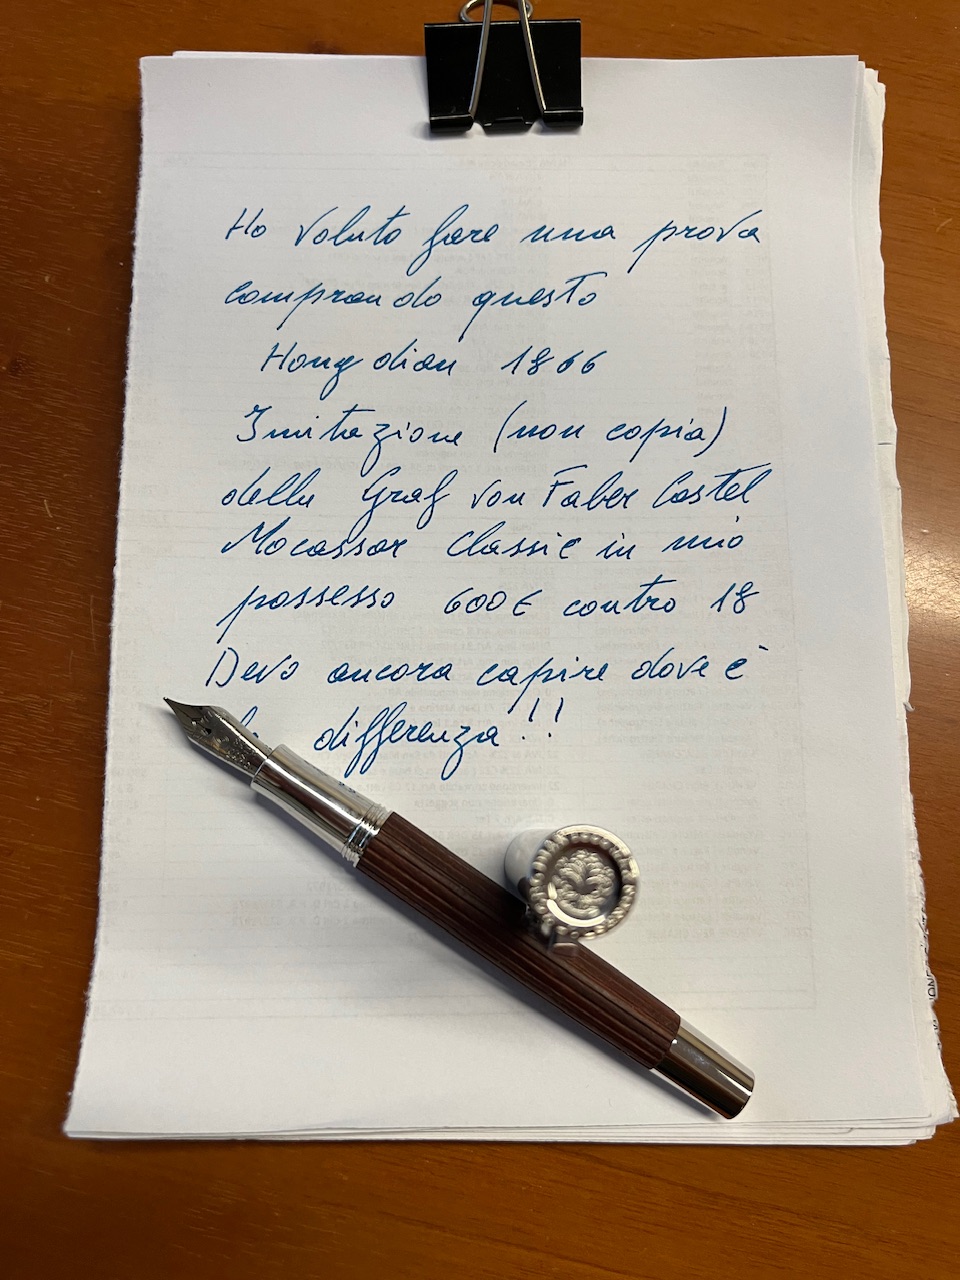 Ho voluto fare una prova
comprando questo
Hongdian 1866
Imitazione (non copia)
della Graf von Faber Castel
Mocassar Classic in mio
possesso 600€ contro 18
Devo ancora capire dove è
la differenza!!